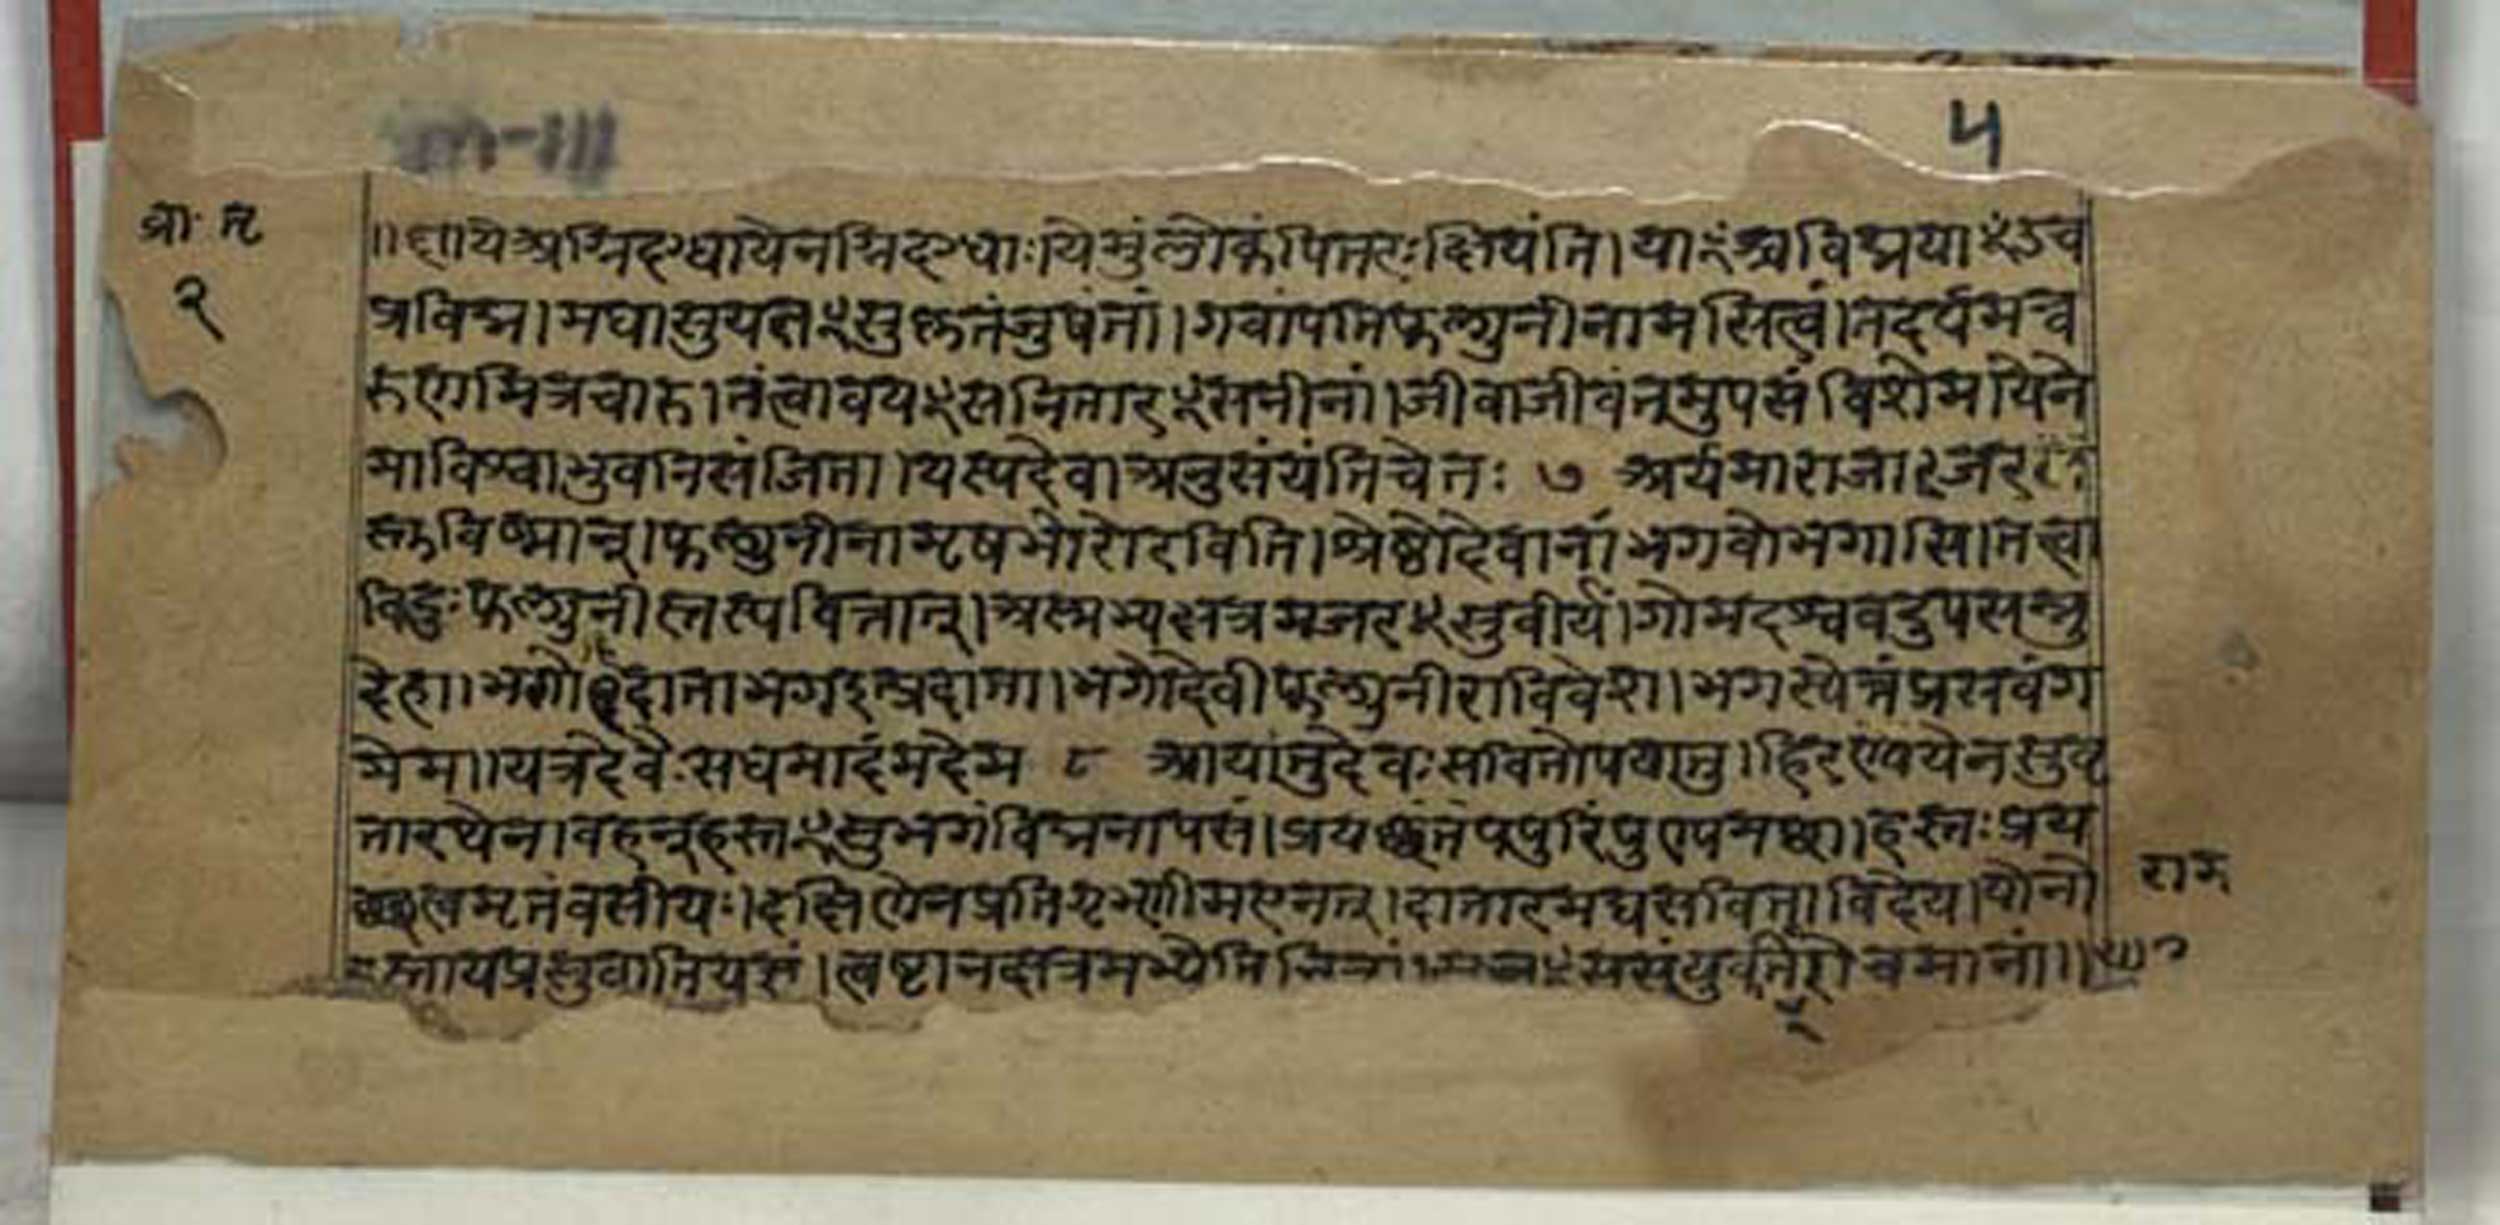 ५
ब्रा. न
२
॥क्षा।ये अग्निदग्धायेनग्निदग्धाः।येमुंलोकंपितरःक्षियंति।या२ंश्चविद्मया२ंऽच
प्रविद्म।मघासुयज्ञ२ंसुकृतंजुषंतां।गवांपतिफल्गुनीनामसित्वं।तदर्यमन्व
रुणमित्रचारु।तंत्वावय२ंसनितार२ंसनीनां।जीवाजीवंतमुपसंविशेम।येने
माविश्वाभुवनिसंजिता।यस्यदेवाअनुसंयंतिचेतः ७ अर्यमाराजाऽजर
स्तुविष्मान्।फल्गुनीनामृषभोरोरवीति।श्रेष्ठोदेवानांभगवोभगासि।तत्त्वा
विदुःफल्गुनीस्तस्यवित्तात्।अस्मभ्यंक्षत्रमजर२ंसुवीर्यं।गोमदश्ववदुपसन्नु
देहा।भगोहदाताभगइत्प्रदाता।भगोदेवीफल्गुनीराविवेश।भगस्येत्तंप्रसवंग
मेम।।यत्रदेवैःसधमादंमदेम ८ आयांतुदेवःसवितोपयातु।हिरण्ययेनसुवृ
तारथेन।वहन्हस्त२ंसुभगंविद्मनापसं।प्रयच्छंतंपपुरिंपुण्यमच्छ।हस्तःप्रय
च्छत्वमृतंवसीयः।दक्षिणेनप्रतिगृभ्णीमएनत्।दातारमद्यसविता।विदेय।योनो
राम
हस्तायप्रसुवातियज्ञं।त्वष्टानक्षत्रमभ्येतिचित्रां।२ंससंयुवतिंरोचमानां॥